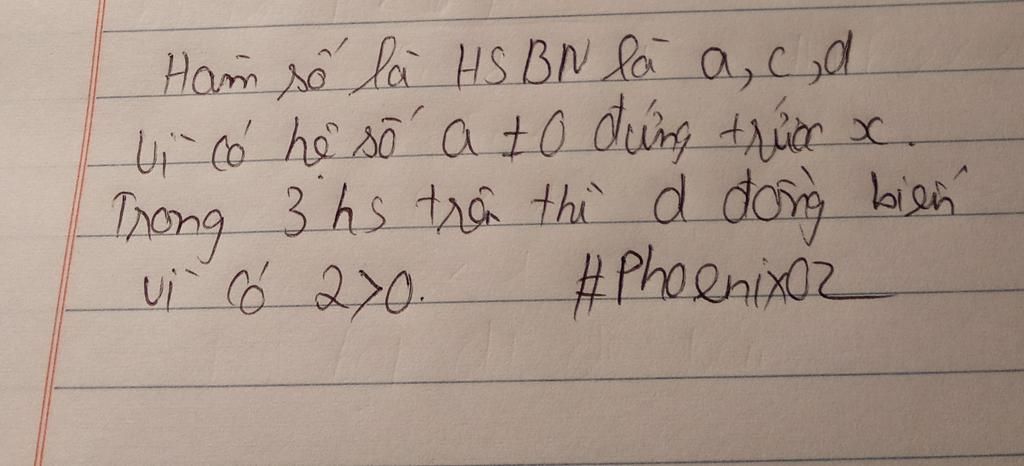 Hàm số là HSBN là a, c, d
Vì có hệ số a ≠ 0 đứng trước x.
Trong 3 hs trên thì d đồng biến
vì có 2>0. #Phoenix02